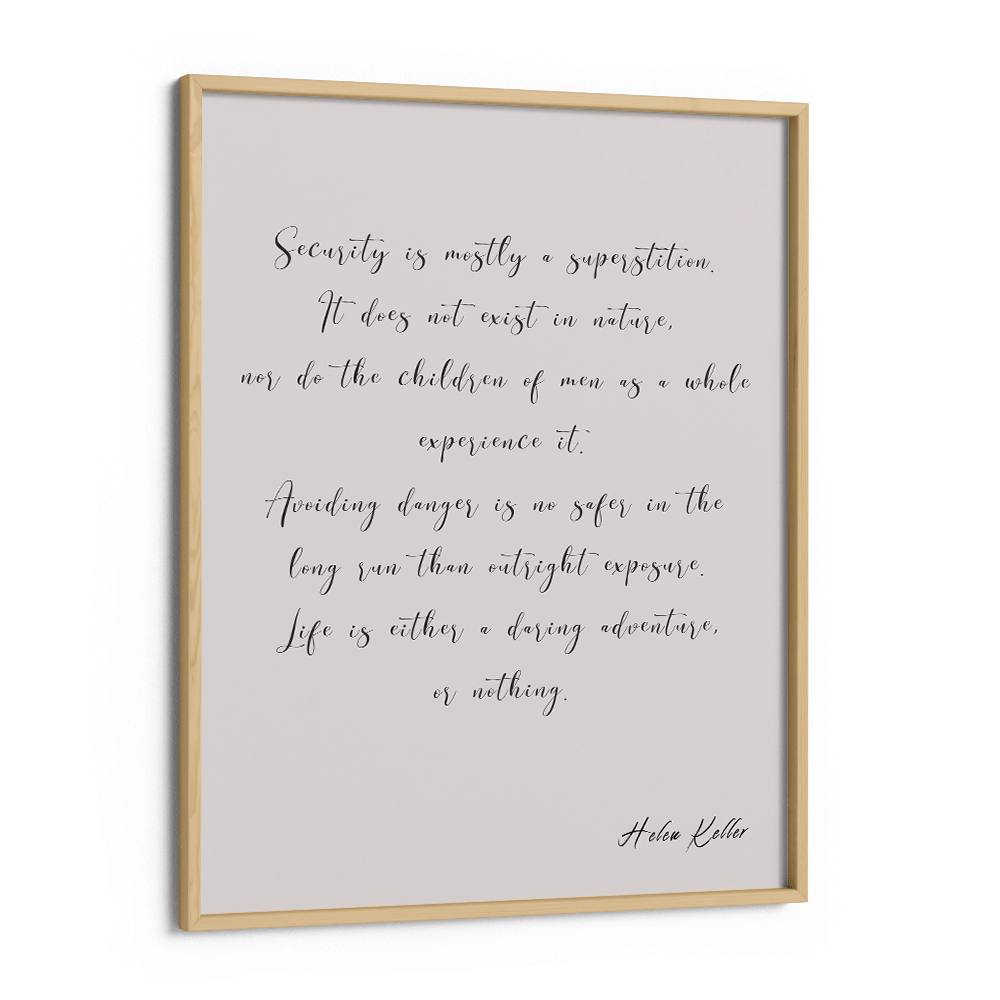 Security is mostly a superstition.
It does not exist in nature,
nor do the children of men as a whole
experience it.
Avoiding danger is no safer in the
long run than outright exposure.
Life is either a daring adventure,
or nothing.
Helen Keller